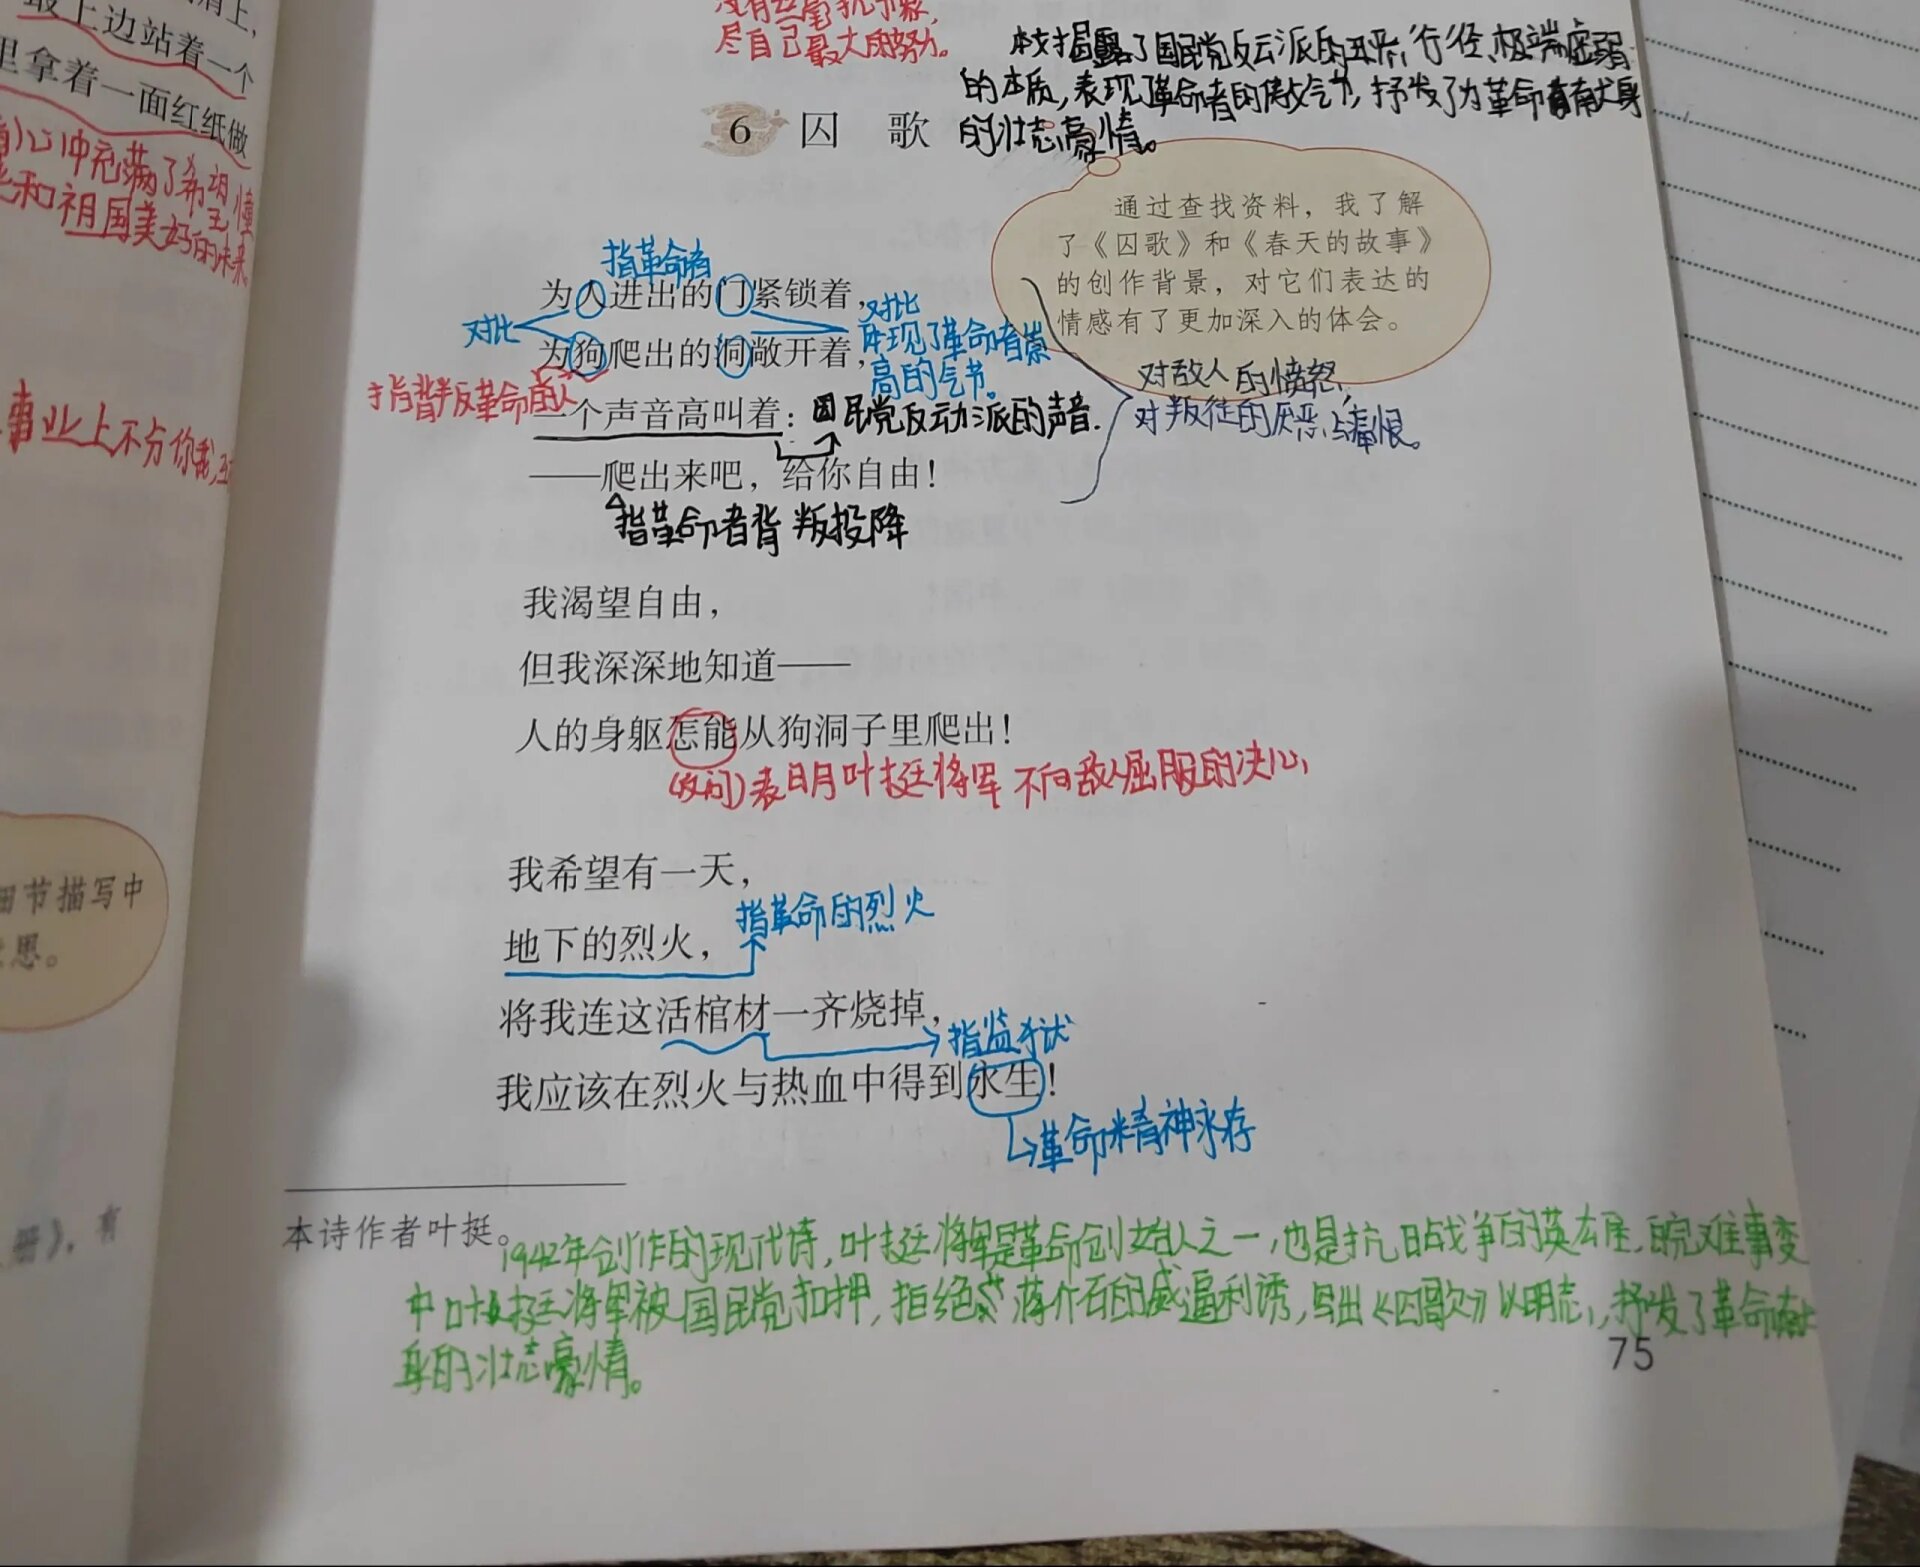 最上边站着一个
里拿着一面红纸做
心中充满了希望，憧
和祖国美好的未来。
事业上不分你我，
细节描写中
思。
册》，有
尽自己最大的努力。
本文揭露了国民党反动派的丑恶行径、极端虚弱
的本质，表现了革命者的傲气，抒发了为革命献身
的壮志豪情。
6 囚 歌
通过查找资料，我了解
了《囚歌》和《春天的故事》
的创作背景，对它们表达的
情感有了更加深入的体会。
指革命者
为人进出的门紧锁着，
对比
对比
为狗爬出的洞敞开着，
体现了革命者崇
高的气节。
指背叛革命的人
一个声音高叫着：
国民党反动派的声音.
对敌人的愤怒，
对叛徒的厌恶与痛恨。
——爬出来吧，给你自由！
指革命者背叛投降
我渴望自由，
但我深深地知道——
人的身躯怎能从狗洞子里爬出！
(反问)表明叶挺将军不向敌人屈服的决心，
我希望有一天，
指革命的烈火
地下的烈火，
将我连这活棺材一齐烧掉，
指监狱
我应该在烈火与热血中得到永生！
革命精神永存
本诗作者叶挺。
1942年创作的现代诗，叶挺将军是革命创始人之一，也是抗日战争的英雄，皖难事变
中叶挺将军被国民党扣押，拒绝蒋介石的威逼利诱，写出《囚歌》以明志，抒发了革命献
身的壮志豪情。
75